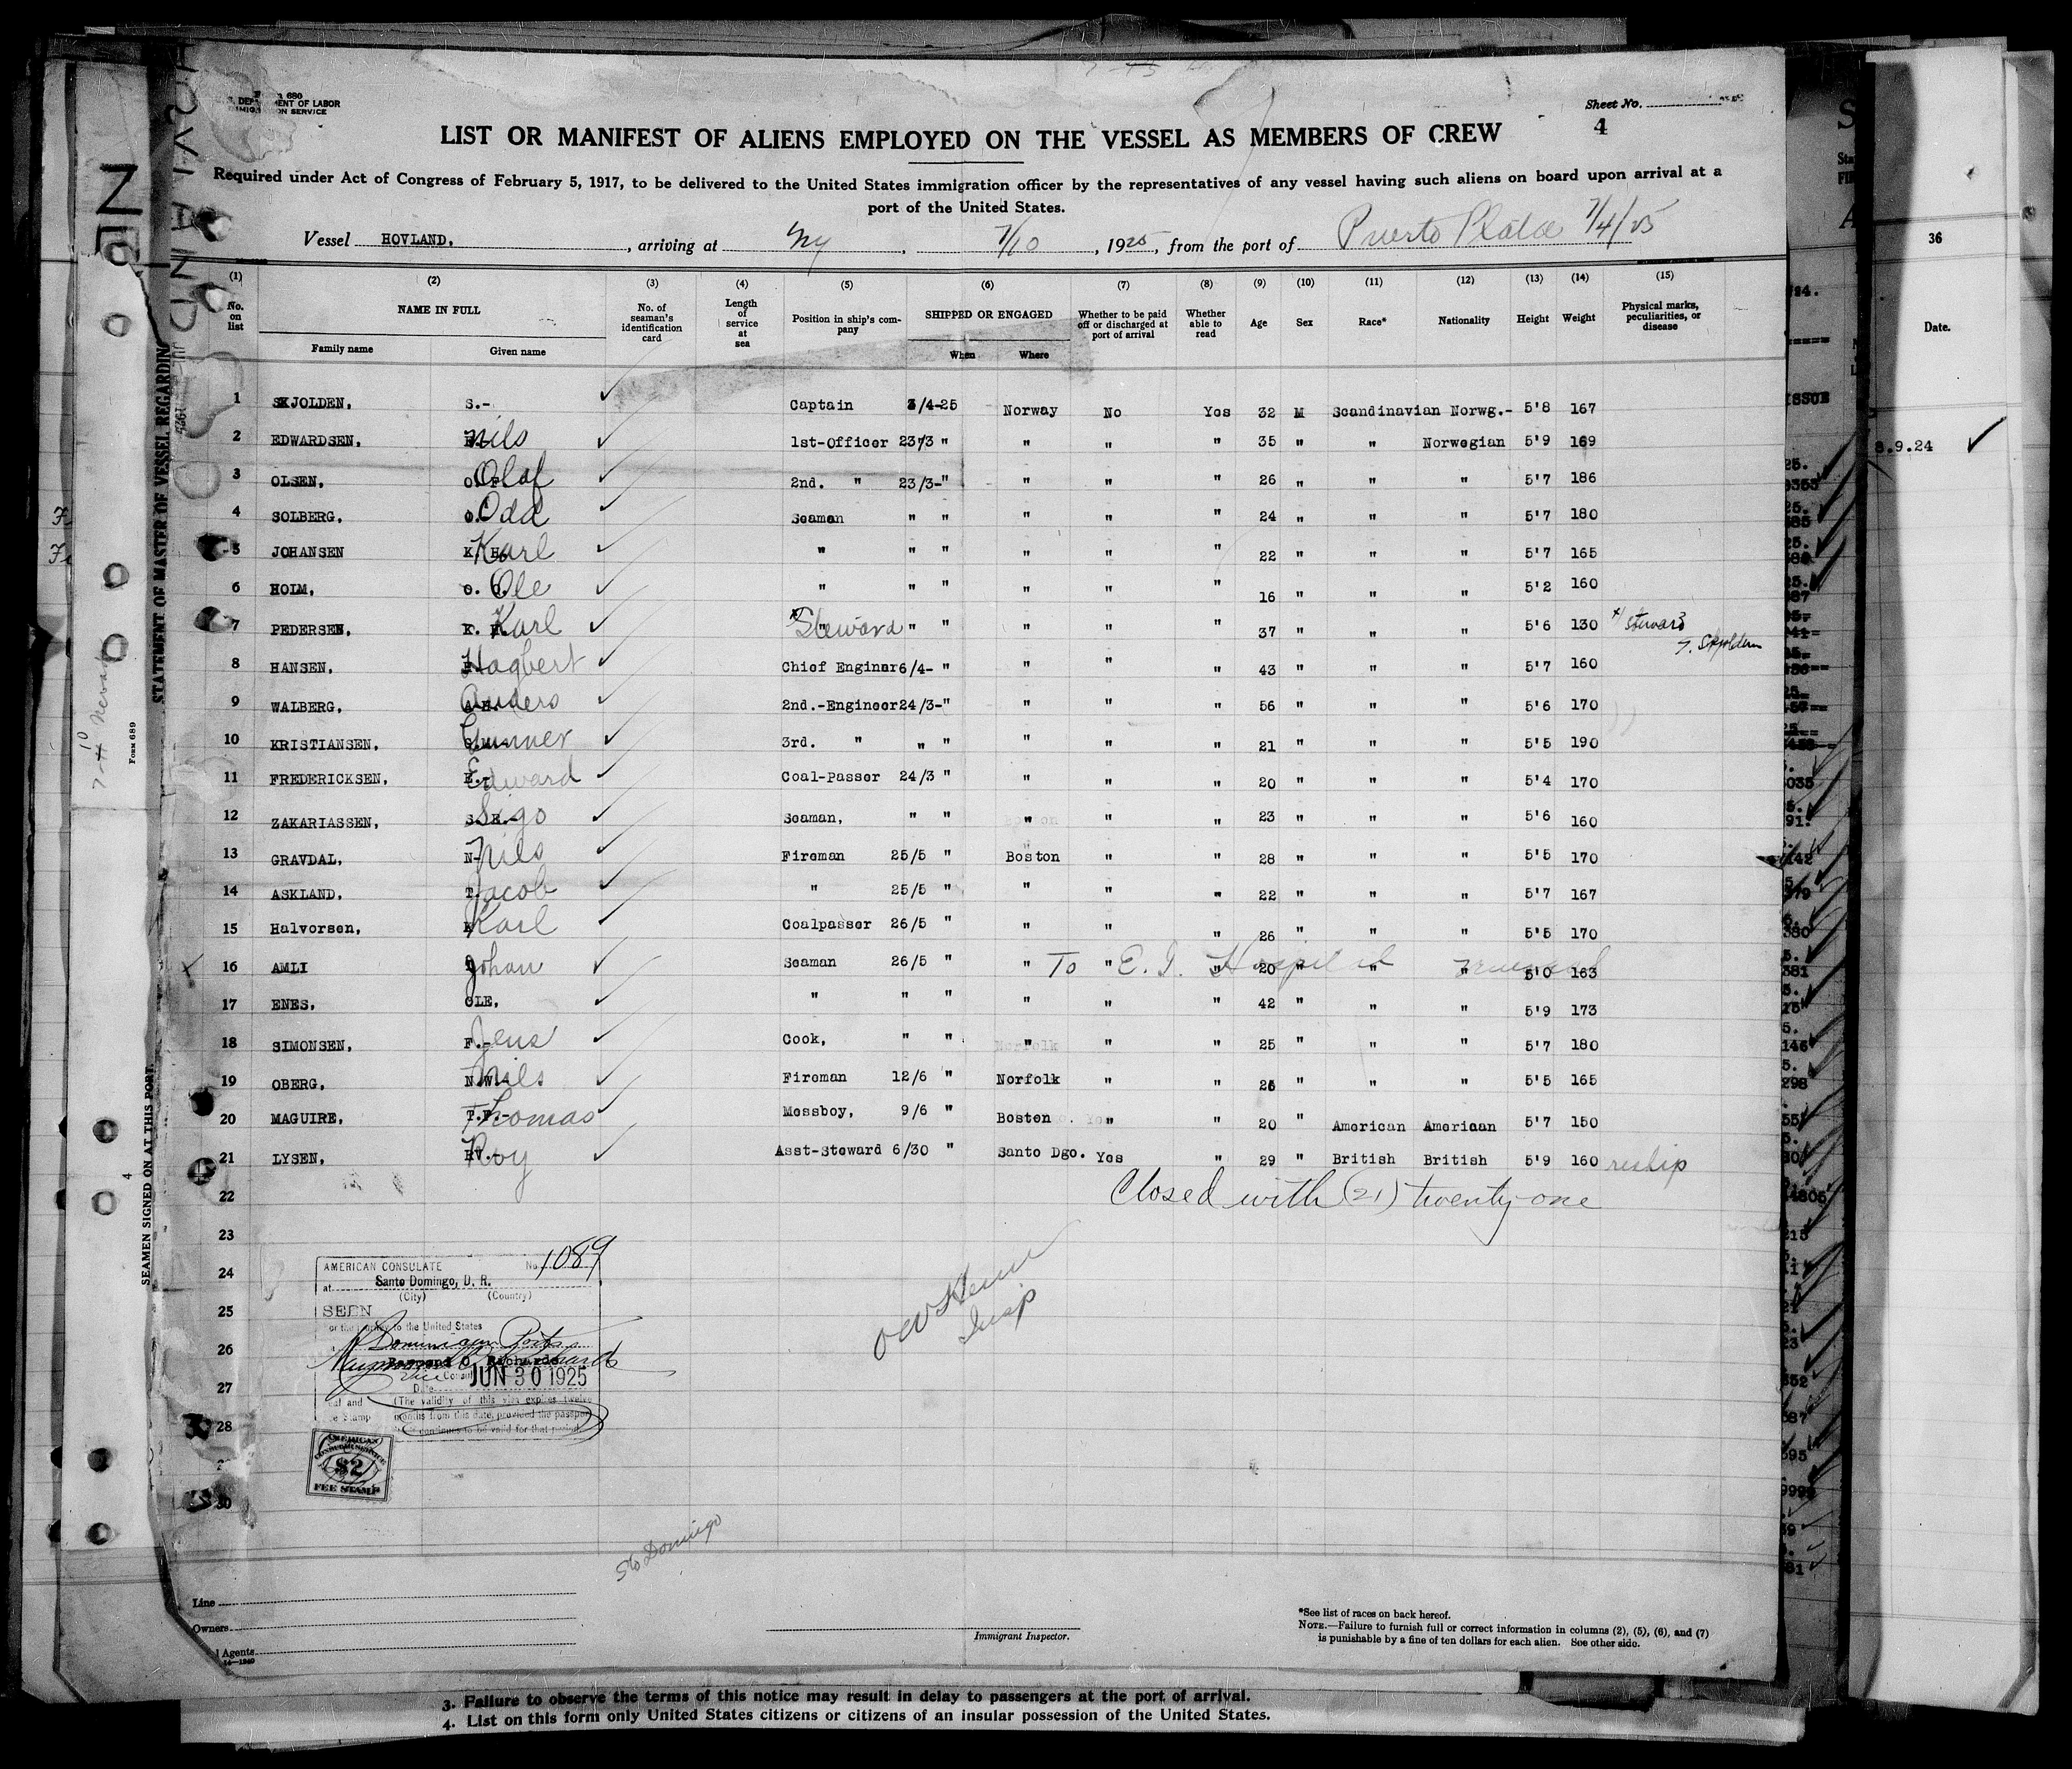 Form 680
U. S. DEPARTMENT OF LABOR
IMMIGRATION SERVICE
Sheet No.
4
LIST OR MANIFEST OF ALIENS EMPLOYED ON THE VESSEL AS MEMBERS OF CREW
Required under Act of Congress of February 5, 1917, to be delivered to the United States immigration officer by the representatives of any vessel having such aliens on board upon arrival at a
port of the United States.
Vessel HOVLAND, , arriving at NY , 7/10 , 1925, from the port of Puerto Plata 7/4/25
(1) (2) (3) (4) (5) (6) (7) (8) (9) (10) (11) (12) (13) (14) (15)
No. on list NAME IN FULL No. of seaman's identification card Length of service at sea Position in ship's company SHIPPED OR ENGAGED Whether to be paid off or discharged at port of arrival Whether able to read Age Sex Race* Nationality Height Weight Physical marks, peculiarities, or disease
Family name Given name When Where
1 SKJOLDEN, S.- Captain 3/4-25 Norway No Yes 32 M Scandinavian Norwg.- 5'8 167
2 EDWARDSEN, Nils 1st-Officer 23/3 " " " " 35 " " Norwegian 5'9 169
3 OLSEN, Olaf 2nd. " 23/3-" " " " 26 " " " 5'7 186
4 SOLBERG, Odd Seaman " " " " " 24 " " " 5'7 180
5 JOHANSEN Karl " " " " " " 22 " " " 5'7 165
6 HOLM, O. Ole " " " " " " 16 " " " 5'2 160
7 PEDERSEN, K. Karl Steward " " " " " 37 " " " 5'6 130 x/ steward
8 HANSEN, Hagbert Chief Enginer 6/4- " " " " 43 " " " 5'7 160
9 WALBERG, Anders 2nd.-Engineer 24/3-" " " " 56 " " " 5'6 170
10 KRISTIANSEN, Gunner 3rd. " " " " " " 21 " " " 5'5 190
11 FREDERICKSEN, Edward Coal-Passer 24/3 " " " " 20 " " " 5'4 170
12 ZAKARIASSEN, Sigo Seaman, " " " " " 23 " " " 5'6 160
13 GRAVDAL, Nils Fireman 25/5 " Boston " " 28 " " " 5'5 170
14 ASKLAND, Jacob " 25/5 " " " " 22 " " " 5'7 167
15 Halvorsen, Karl Coalpasser 26/5 " " " " 26 " " " 5'5 170
x 16 AMLI Johan Seaman 26/5 " " To " E. I. Hospital " 20 " " " 5'0 163
17 ENES, OLE, " " " " " " 42 " " " 5'9 173
18 SIMONSEN, F.- Jens Cook, " " " " " 25 " " " 5'7 180
19 OBERG, N.W.- Nils Fireman 12/6 " Norfolk " " 26 " " " 5'5 165
20 MAGUIRE, T.F.- Thomas Messboy, 9/6 " Boston " " 20 " American American 5'7 150
21 LYSEN, Roy Asst-Steward 6/30 " Santo Dgo. Yes " 29 " British British 5'9 160 reship
22 Closed with (21) twenty-one
23
24
25
26
27
28
30
AMERICAN CONSULATE No. 1089
at Santo Domingo, D. R.
(City) (Country)
SEEN
for the journey to the United States
Dominican Ports
Raymond O. Richards
Vice Consul
Date JUN 30 1925
(The validity of this visa expires twelve
months from this date, provided the passport
continues to be valid for that period.)
AMERICAN
CONSULAR SERVICE
$2
FEE STAMP
Insp
Sto Domingo
Line
Owners
Agents
Immigrant Inspector.
*See list of races on back hereof.
NOTE.—Failure to furnish full or correct information in columns (2), (5), (6), and (7)
is punishable by a fine of ten dollars for each alien. See other side.
3. Failure to observe the terms of this notice may result in delay to passengers at the port of arrival.
4. List on this form only United States citizens or citizens of an insular possession of the United States.
STATEMENT OF MASTER OF VESSEL REGARDING
SEAMEN SIGNED ON AT THIS PORT.
4
Form 689
36
Date.
8.9.24